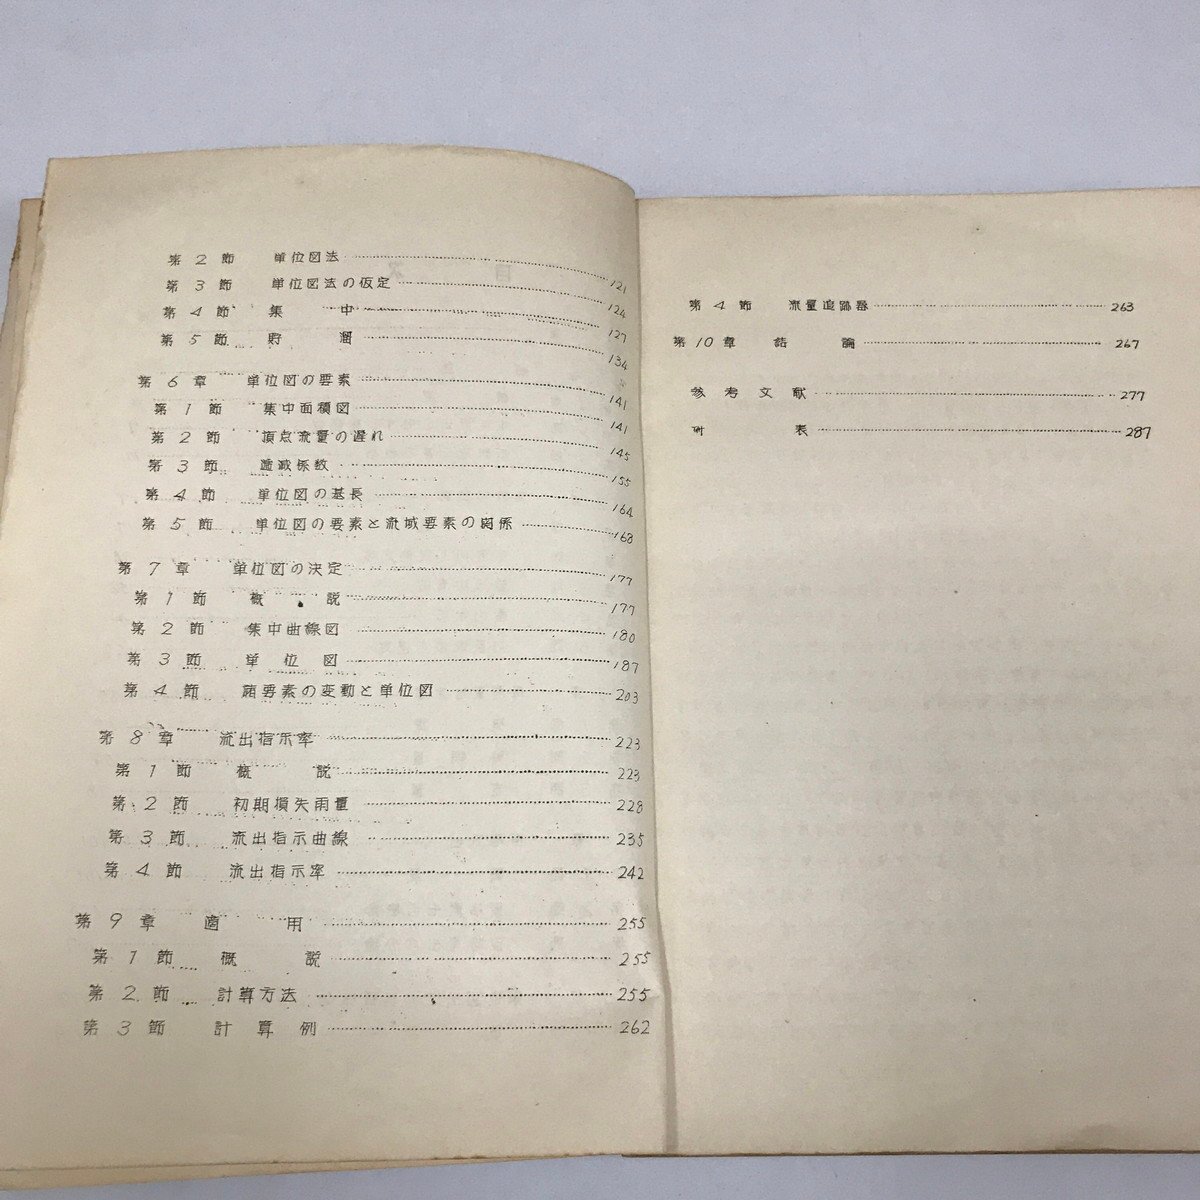 第2節 単位図法 121
第3節 単位図法の仮定 124
第4節 集中 127
第5節 貯溜 134
第6章 単位図の要素 141
第1節 集中面積図 141
第2節 頂点流量の遅れ 145
第3節 逓減係数 155
第4節 単位図の基長 164
第5節 単位図の要素と流域要素の関係 168
第7章 単位図の決定 177
第1節 概説 177
第2節 集中曲線図 180
第3節 単位図 187
第4節 諸要素の変動と単位図 203
第8章 流出指示率 223
第1節 概説 223
第2節 初期損失雨量 228
第3節 流出指示曲線 235
第4節 流出指示率 242
第9章 適用 255
第1節 概説 255
第2節 計算方法 255
第3節 計算例 262
第4節 流量追跡器 263
第10章 結論 267
参考文献 277
附表 287